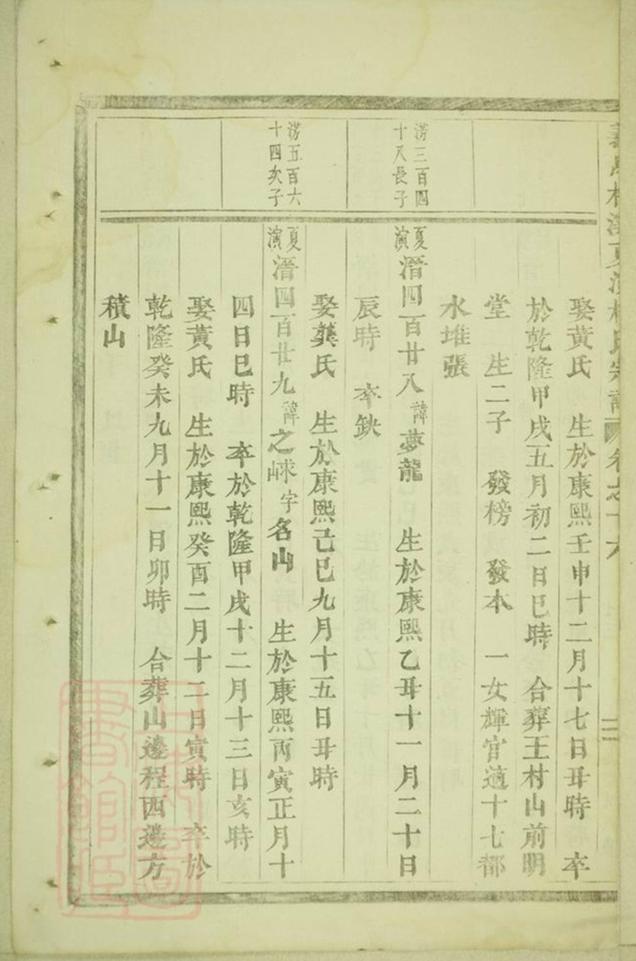 娶黃氏　生於康熙壬申十二月十七日丑時　卒
於乾隆甲戌五月初二日巳時　合葬王村山前明
堂　生二子　發榜　發本　一女輝官適十七都
水堆張
澇三百四
十八長子
夏演濳四百廿八諱夢龍　生於康熙乙丑十一月二十日
辰時　卒缺
娶龔氏　生於康熙己巳九月十五日丑時
澇五百六
十四次子
夏演濳四百廿九諱之崍字名山　生於康熙丙寅正月十
四日巳時　卒於乾隆甲戌十二月十三日亥時
娶黃氏　生於康熙癸酉二月十二日寅時　卒於
乾隆癸未九月十一日卯時　合葬山邊程西邊方
積山